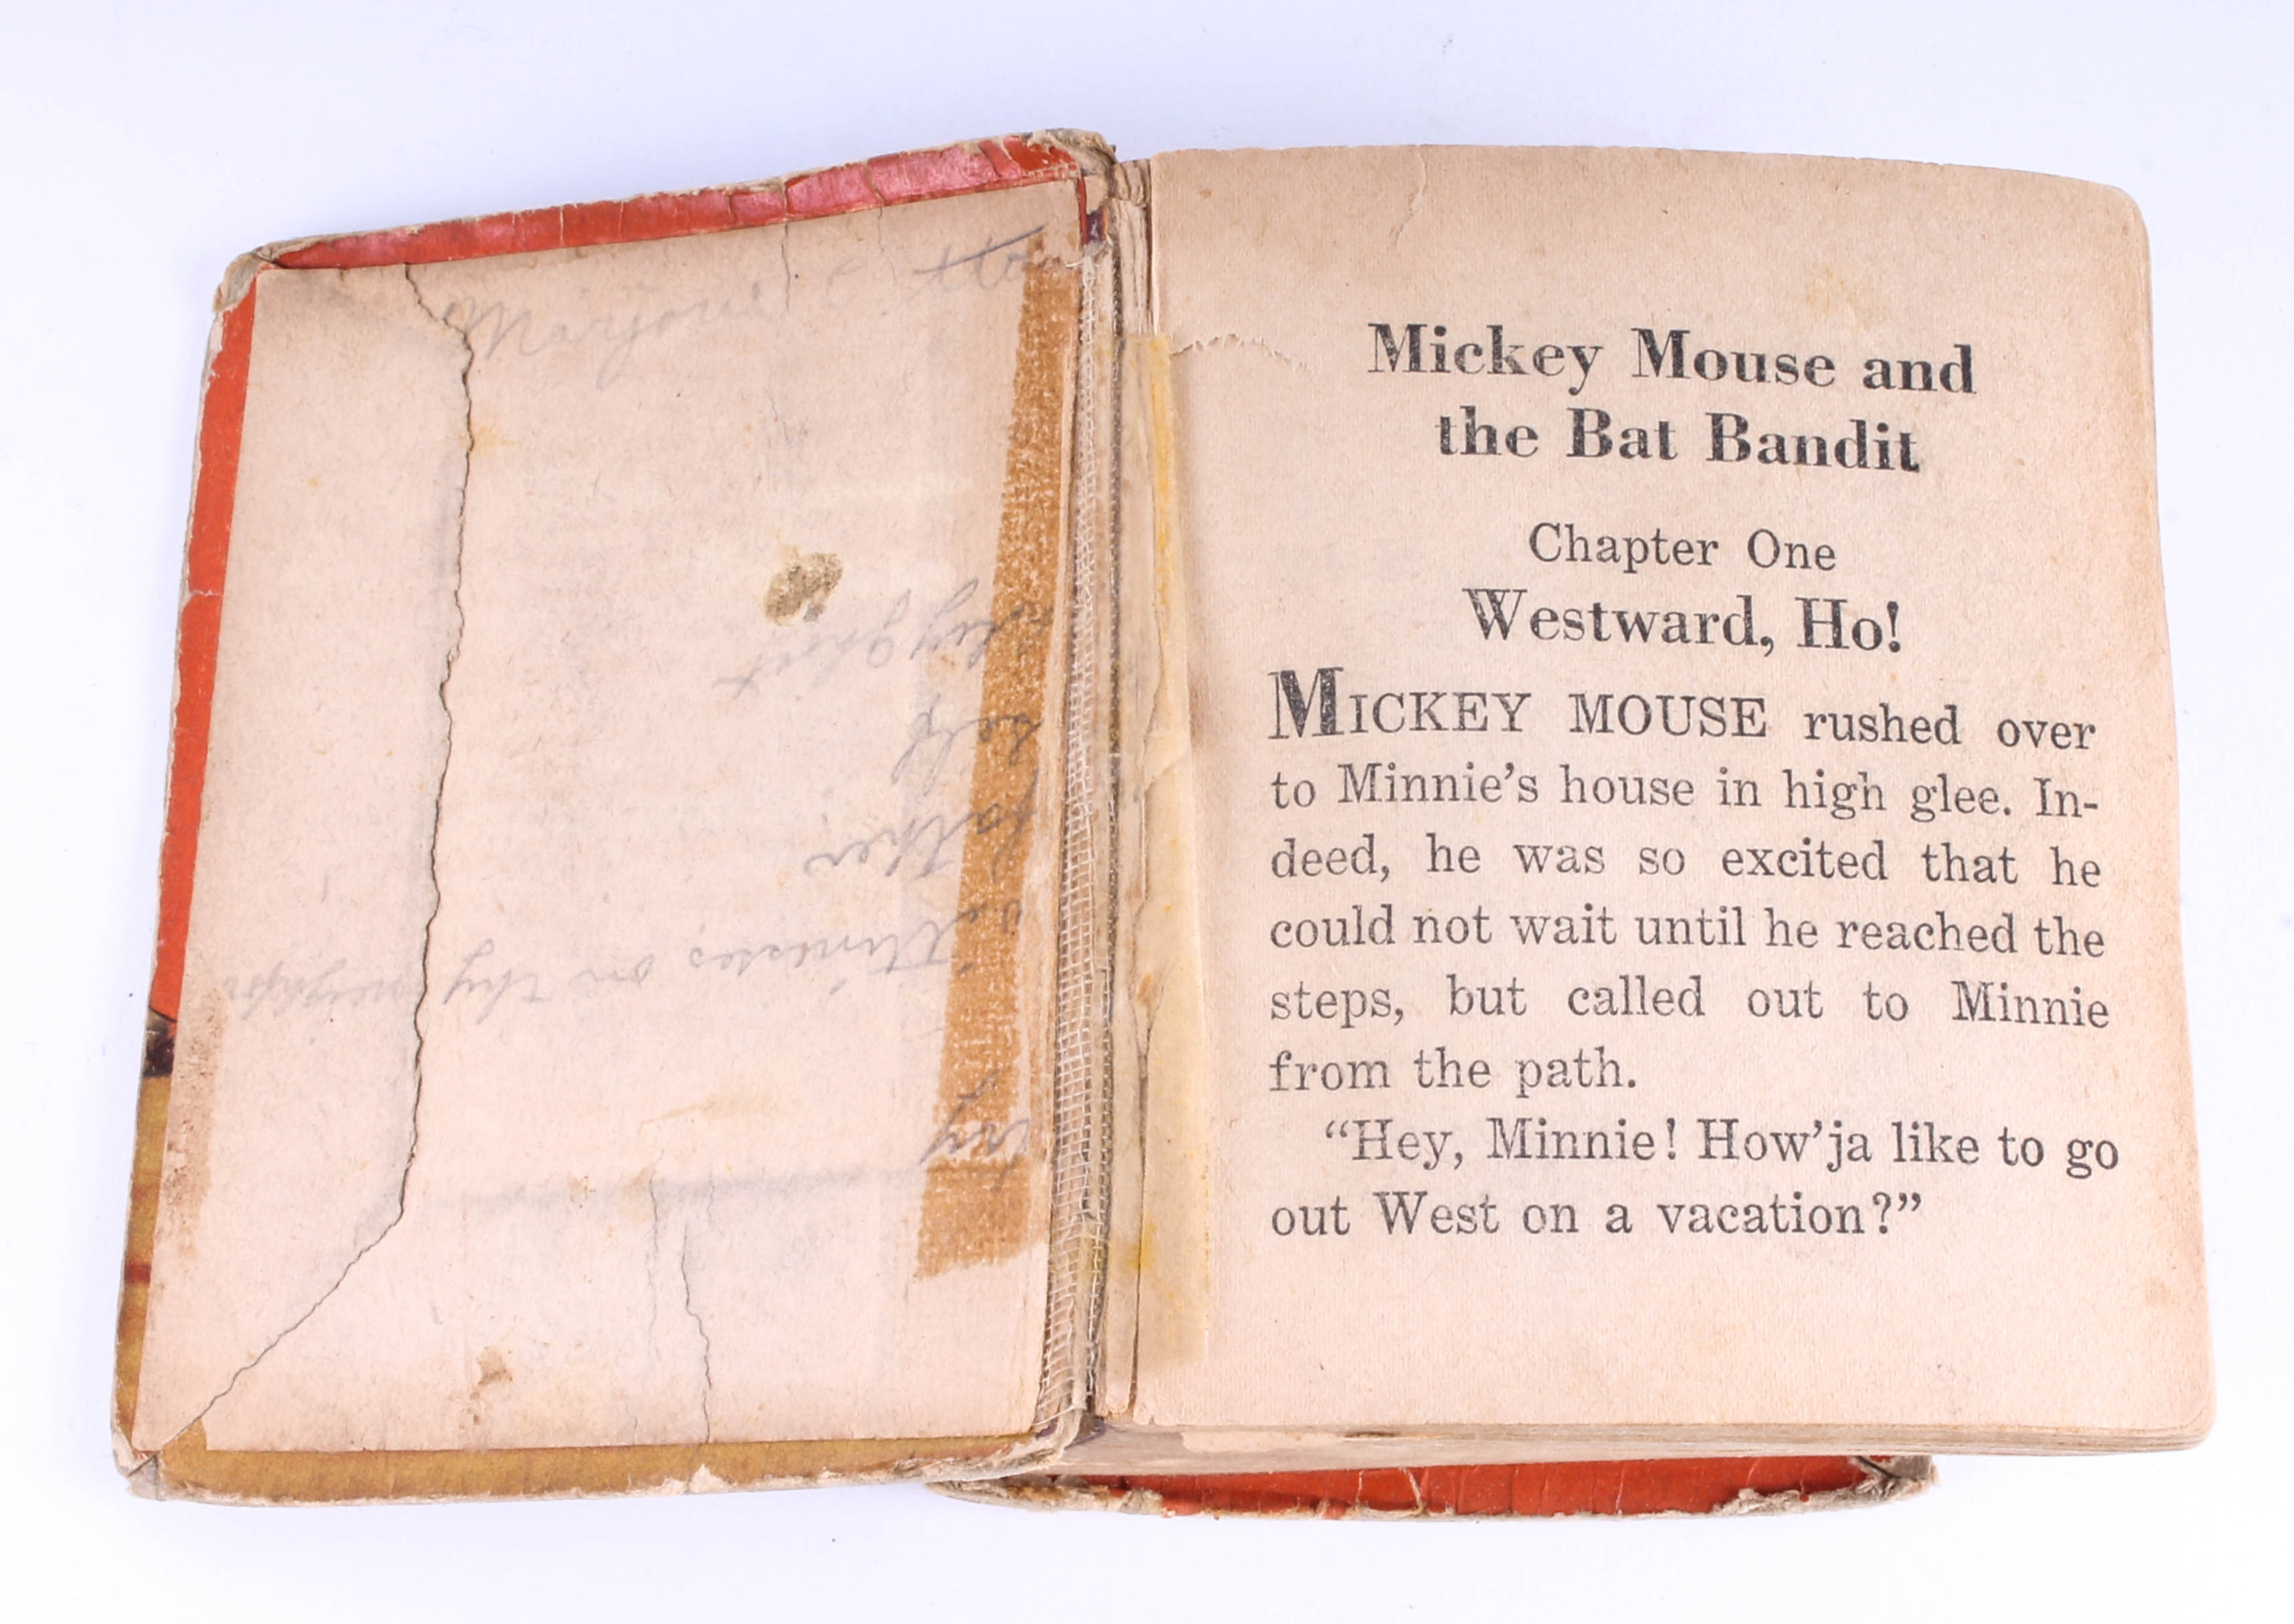 Marjorie
help
father
on thy
try
Mickey Mouse and
the Bat Bandit
Chapter One
Westward, Ho!
MICKEY MOUSE rushed over
to Minnie's house in high glee. In-
deed, he was so excited that he
could not wait until he reached the
steps, but called out to Minnie
from the path.
"Hey, Minnie! How'ja like to go
out West on a vacation?"